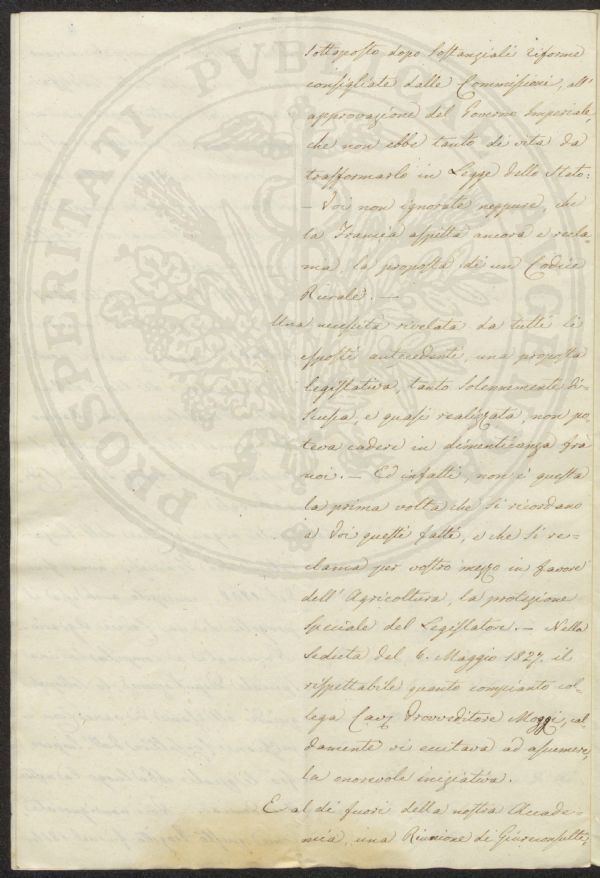 sottoposto dopo sostanziali riforme
consigliate dalle Commissioni, all'
approvazione del Governo Imperiale,
che non ebbe tanto di vita da
trasformarlo in Legge dello Stato:
– Voi non ignorate neppure, che
la Francia aspetta ancora e recla-
ma la proposta di un Codice
Rurale. —
Una necessità rivelata da tutti li
esposti antecedenti, una proposta
legislativa, tanto solennemente di-
scussa, e quasi realizzata, non po-
teva cadere in dimenticanza frà
noi. — Ed infatti, non è questa
la prima volta che si ricordano
a Voi questi fatti, e che si re-
clama per vostro mezzo in favore
dell' Agricoltura, la protezione
speciale del Legislatore. — Nella
seduta del 6. Maggio 1827. il
rispettabile quanto compianto col-
lega Cav. Provveditore Moggi, cal-
damente vi eccitava ad assumere,
la onorevole iniziativa.
E al di fuori della nostra Accade-
mia, una Riunione di Giureconsulti,
PROSPERITATI PVBLICAE AVGE